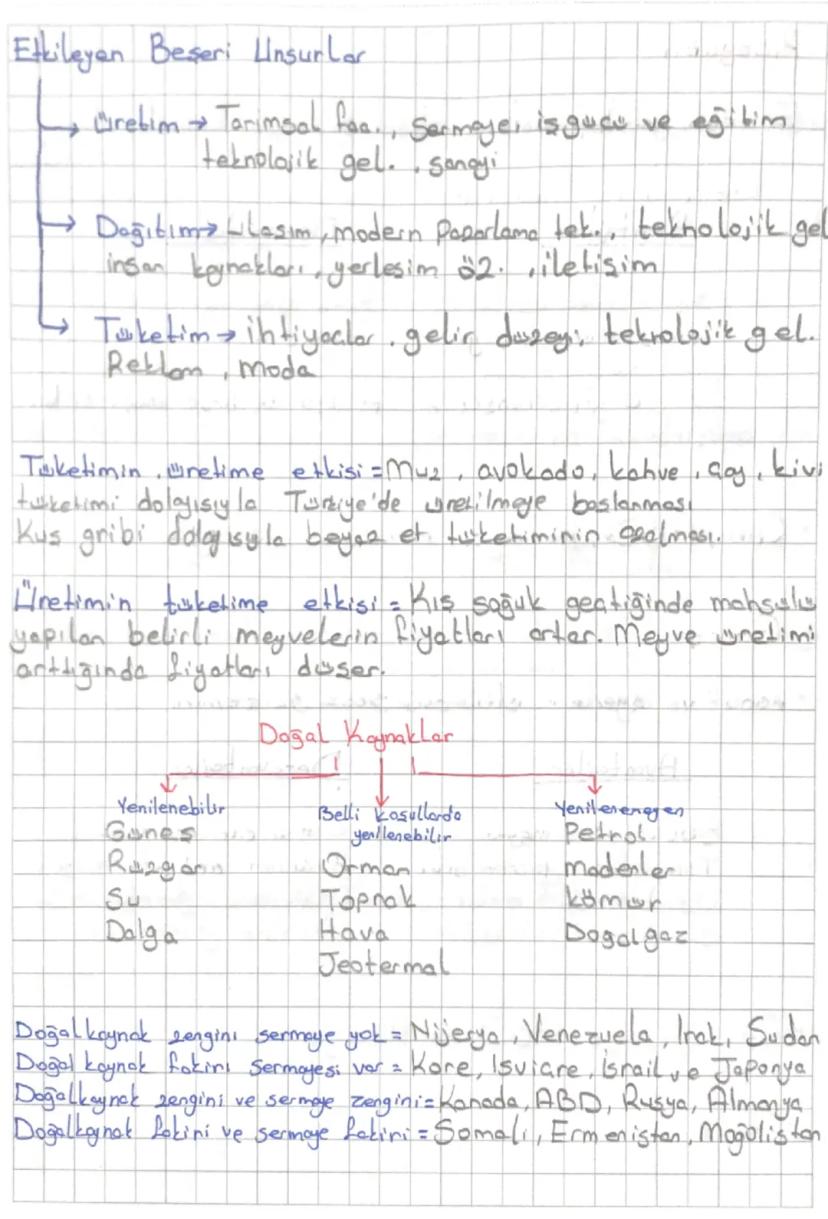 Etkileyen Beşeri Unsurlar
→ Üretim → Tarımsal faa., Sermaye, işgücü ve eğitim
teknolojik gel. , sanayi
→ Dağıtım → Ulaşım, modern Pazarlama tek., teknolojik gel
insan kaynakları, yerleşim öz. , iletişim
→ Tüketim → ihtiyaclar, gelir düzeyi, teknolojik gel.
Reklam , moda
Tüketimin üretime etkisi = Muz , avokado, kahve , çay , kivi
tüketimi dolayısıyla Türkiye'de üretilmeye başlanması
Kuş gribi dolayısyla beyaz et tüketiminin azalması.
Üretimin tüketime etkisi = Kış soğuk geçtiğinde mahsulü
yapılan belirli meyvelerin fiyatları artar. Meyve üretimi
arttığında fiyatları düşer.
Doğal Kaynaklar
Yenilenebilir
Güneş
Rüzgâr
Su
Dalga
Belli koşullarda
yenilenebilir
Orman
Toprak
Hava
Jeotermal
Yenilenemeyen
Petrol
madenler
kömür
Dogalgaz
Doğal kaynak zengini sermaye yok = Nijerya , Venezuela , Irak, Sudan
Doğal kaynak fakiri Sermayesi var = Kore, Isviçre, İsrail ve Japonya
Doğalkaynak zengini ve sermaye zengini = Kanada, ABD, Rusya, Almanya
Doğalkaynak fakiri ve sermaye fakiri = Somali, Ermenistan, Moğolistan